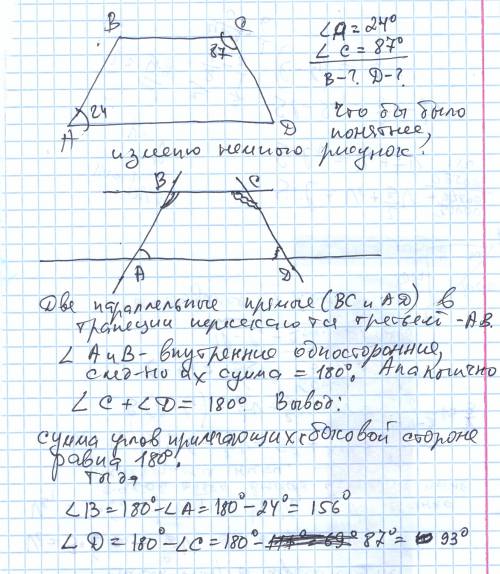 B C
∠A = 24°
87
∠C = 87°
B-? D-?
24
A D
Что бы было
понятнее,
изменю немного рисунок!
B C
A D
Две параллельные прямые (BC и AD) в
трапеции пересекаются третьей - AB.
∠ A и B - внутренние односторонние,
след-но их сумма = 180°. Аналогично
∠C + ∠D = 180° Вывод:
сумма углов прилегающих к боковой стороне
равна 180°!
Тогда
∠B = 180° - ∠A = 180° - 24° = 156°
∠D = 180° - ∠C = 180° - 87° = 93°